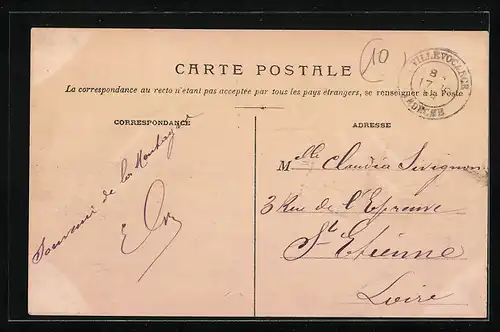 (10)
VILLEVOCANCE
8
17
ARDECHE
CARTE POSTALE
La correspondance au recto n'étant pas acceptée par tous les pays étrangers, se renseigner à la Poste
CORRESPONDANCE
ADRESSE
Souvenir de la Montagne
Mlle Claudia Sivignon
3 Rue de l'Epreuve
St Etienne
Loire